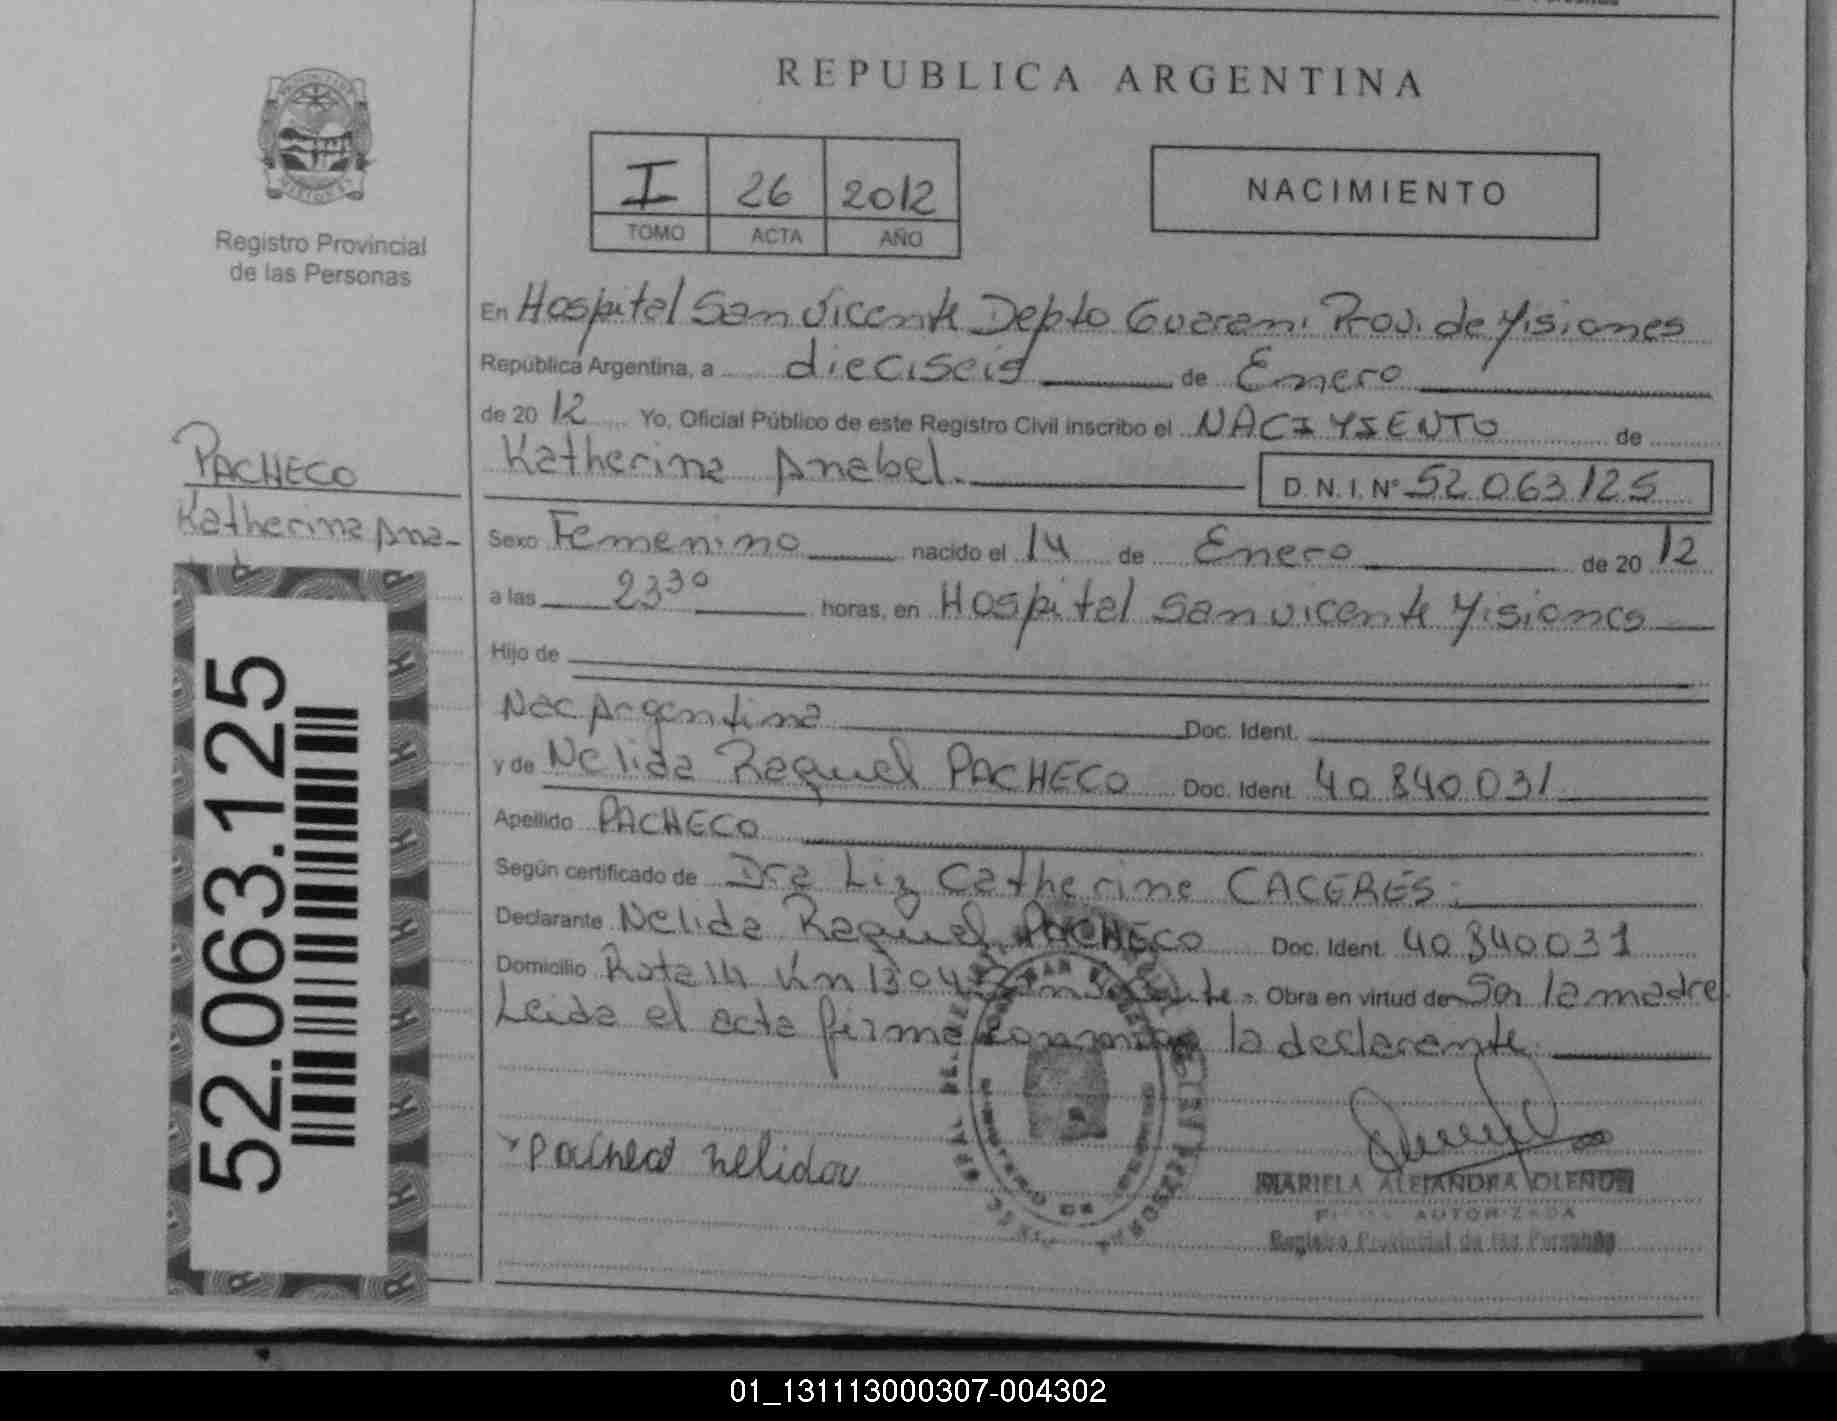 REPUBLICA ARGENTINA
I 26 2012
TOMO ACTA AÑO
NACIMIENTO
Registro Provincial
de las Personas
PACHECO
Katherina Ana-
52.063.125
En Hospital San Vicente Depto Guarani Prov. de Misiones
República Argentina, a dieciseis de Enero
de 2012 Yo, Oficial Público de este Registro Civil inscribo el NACIMIENTO de
Katherina Anabel.
D.N.I. Nº 52.063.125
Sexo Femenino nacido el 14 de Enero de 2012
a las 23³⁰ horas, en Hospital San Vicente Misiones
Hijo de
Nac Argentina Doc. Ident.
y de Nelida Raquel PACHECO Doc. Ident. 40.840.031
Apellido PACHECO
Según certificado de Dra Liz Catherine CACERES.
Declarante Nelida Raquel PACHECO Doc. Ident. 40.840.031
Domicilio Ruta 14 Km 1304 San Vicente. Obra en virtud de Ser la madre
Leida el acta firma conmigo la declarante.
Pacheco nelida
MARIELA ALEJANDRA OLENIUK
FIRMA AUTORIZADA
Registro Provincial de las Personas
01_131113000307-004302